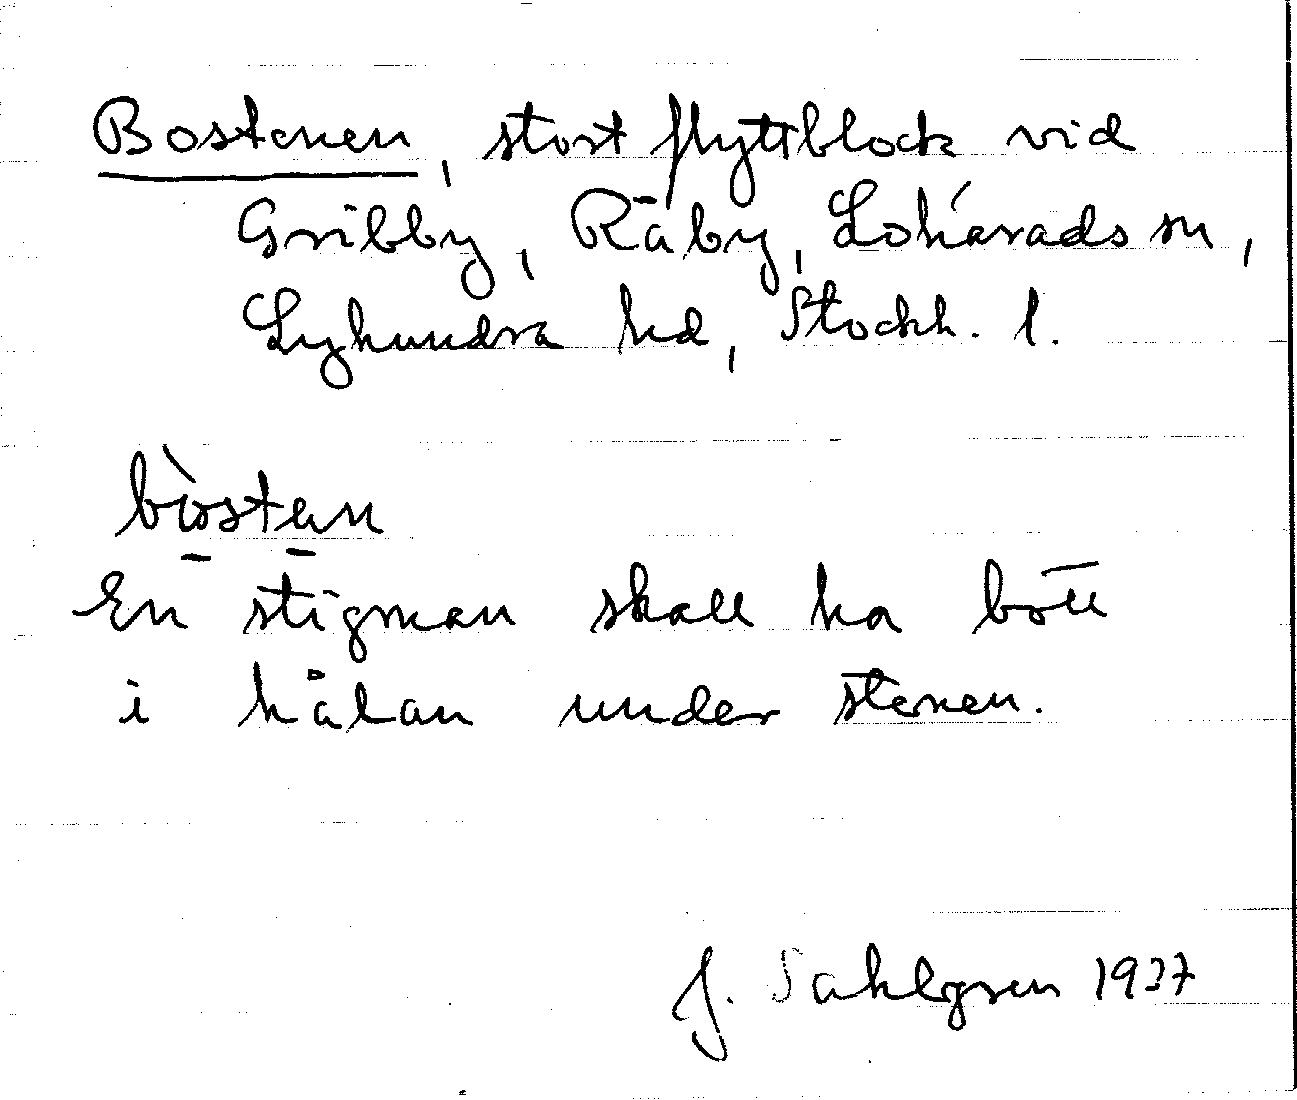 Bostenen, stort flyttblock vid
Gribby, Räby, Lohärads sn,
Lyhundra hd, Stockh. l.
bòsten
En stigman skall ha bott
i hålan under stenen.
J. Sahlgren 1937